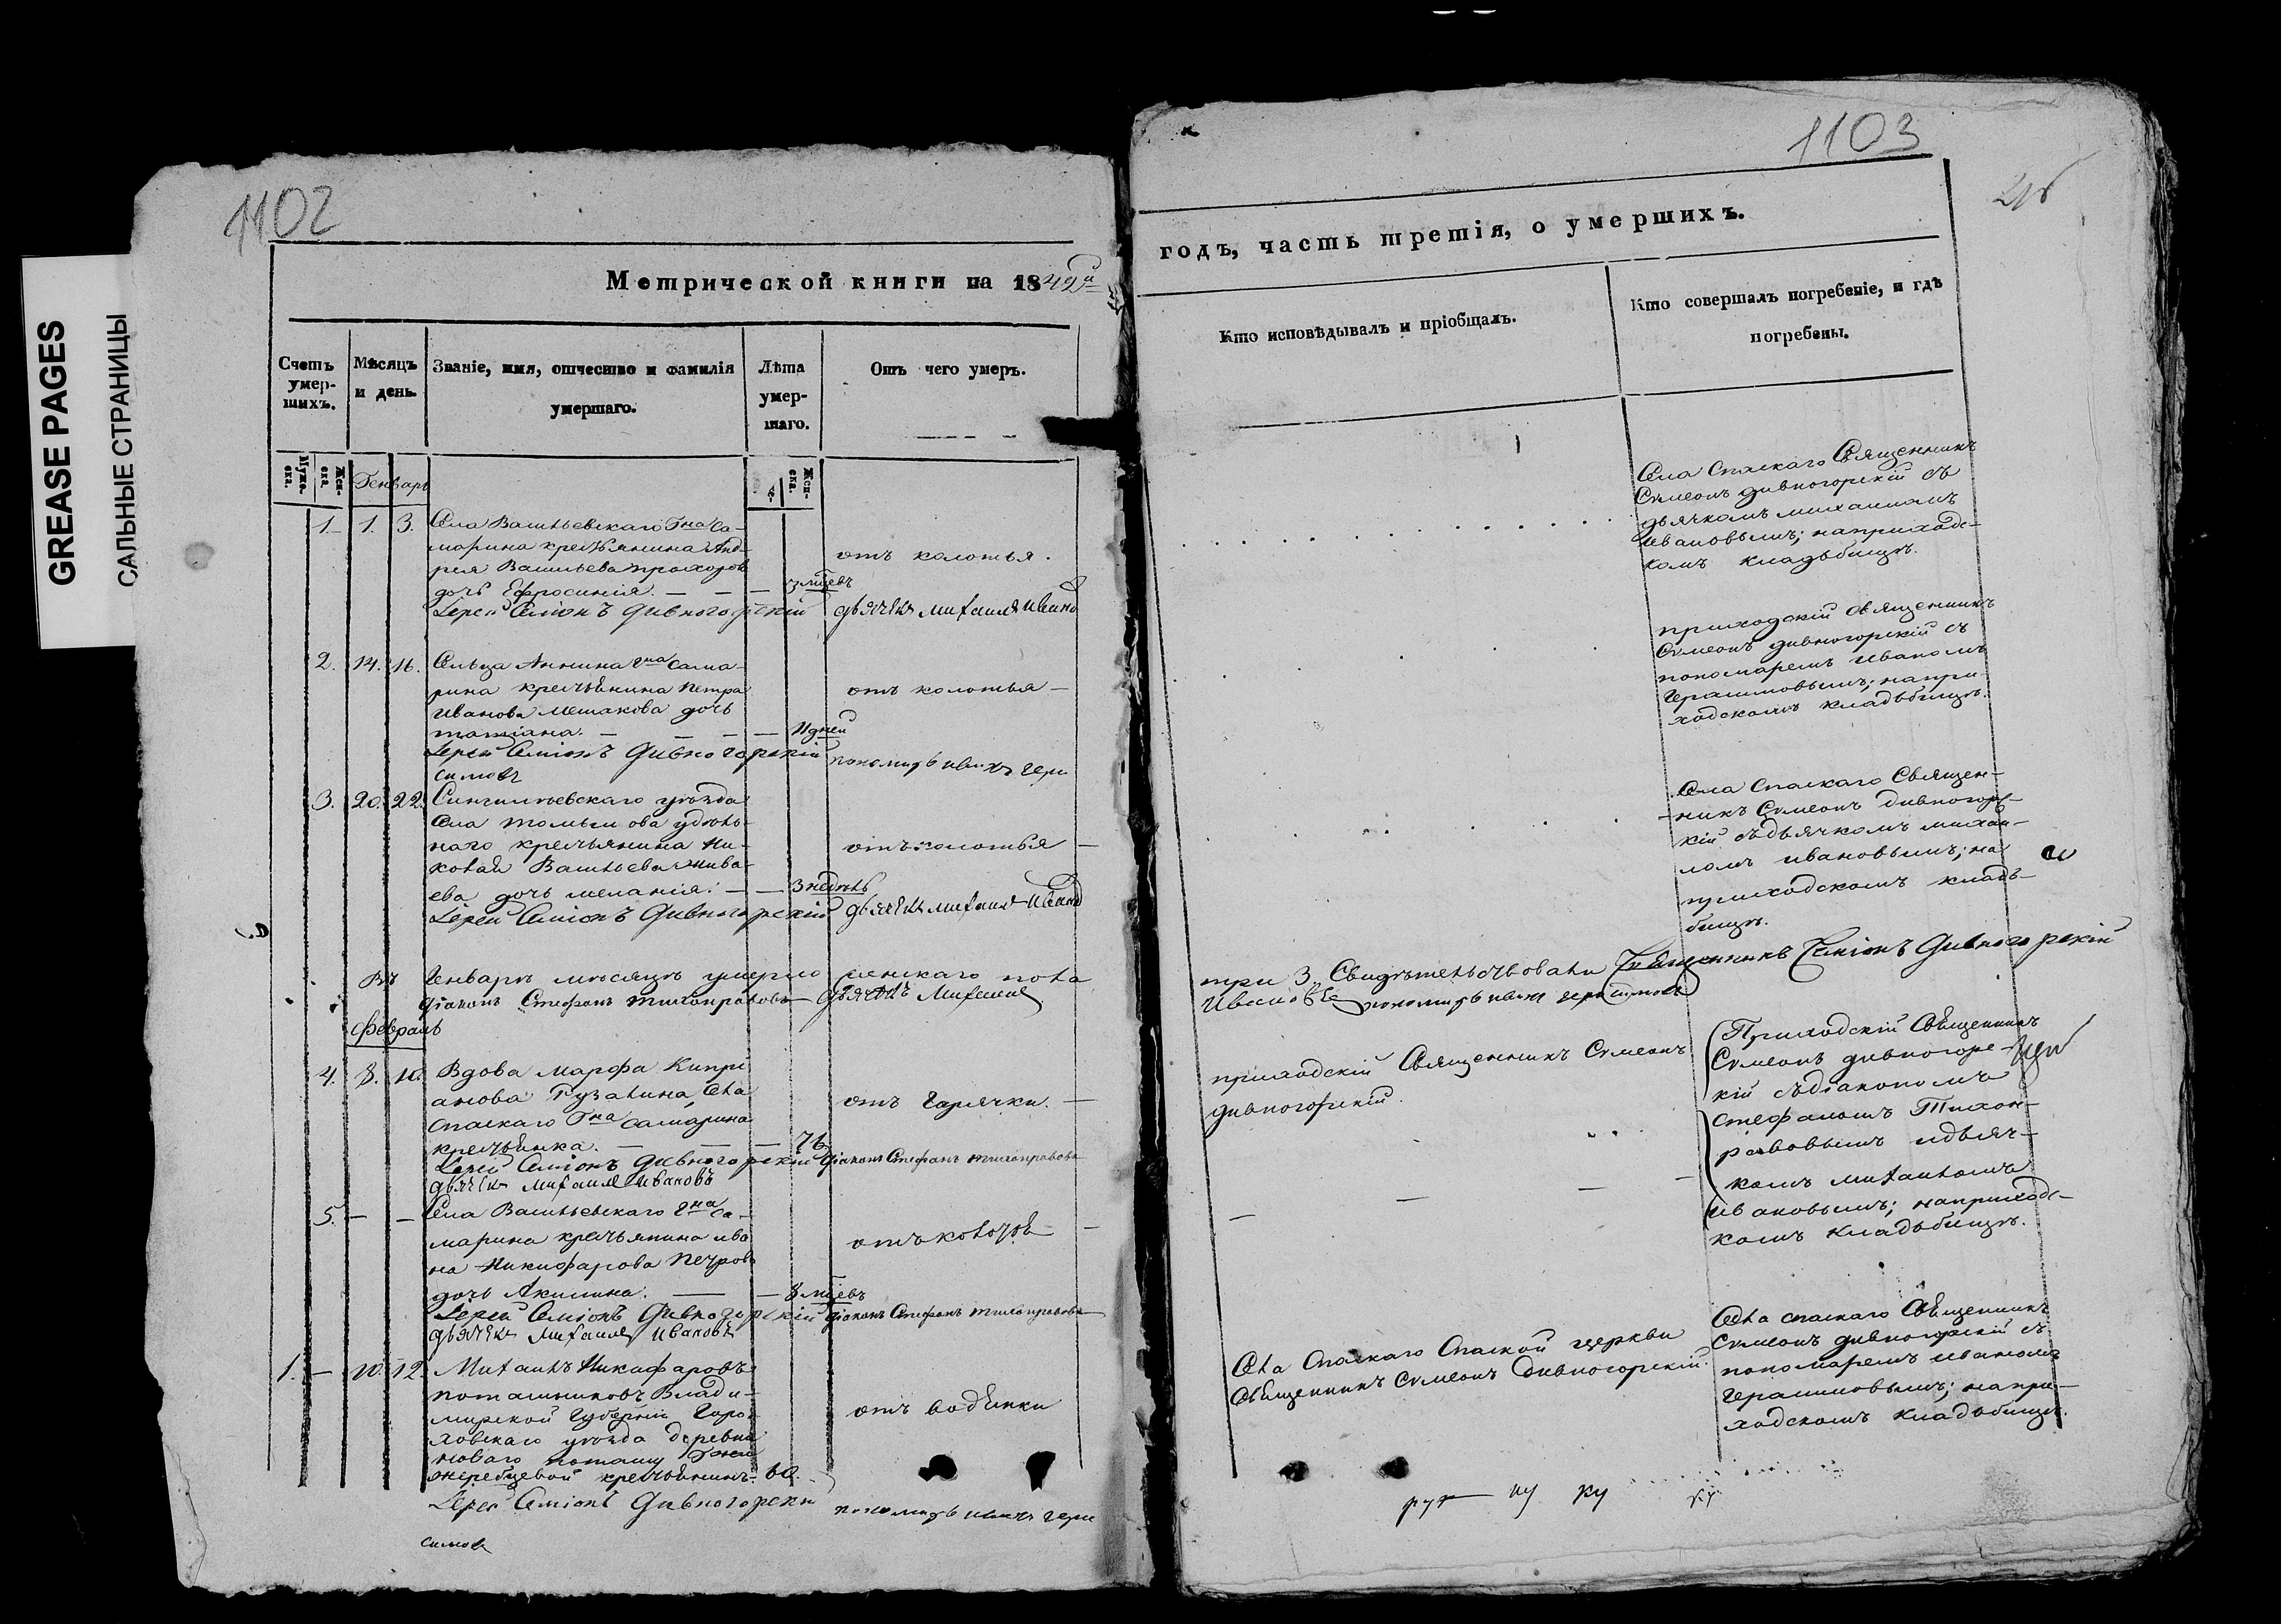 GREASE PAGES
САЛЬНЫЕ СТРАНИЦЫ
1102
Метрической книги на 1842й
Счетъ умер-шихъ.
Мѣсяцъ и день.
Званіе, имя, отчество и фамилія умершаго.
Лѣта умер-шаго.
Отъ чего умеръ.
Муже-ска.
Жен-ска.
Генварь
Жен-ска.
1. 1. 3. Села Васильевскаго Гна Са-
марина крестьянина Анд-
рея Васильева Прохоров
дочь Ефросинія. — — — мцевъ
отъ колотья.
Іерей Симіонъ Дивногорскій дьячекъ Михаилъ Ивано
2. 14. 16. Сельца Аннина Гна Сама-
рина крестьянина Петра
Иванова Мешакова дочь
татіана. — — — — дней
отъ колотья —
Іерей Симіонъ Дивногорскій пономарь Иванъ Гера
симовъ
3. 20. 22. Сингилѣевскаго уѣзда
Села удѣль-
наго крестьянина Ни-
колая Васильева
ева дочь меланія. — — 3 недѣль
отъ колотья —
Іерей Симіонъ Дивногорскій дьячекъ Михаилъ Ивано
Въ Генварѣ мѣсяцѣ умерло женскаго пола
діаконъ Стефанъ Тихонравовъ дьячекъ Михаилъ
Февраль
4. 8. 10. Вдова Марфа Кипрі
анова Гузахина, Села
Спаскаго Гна Самарина
крестьянка. — — —
отъ горячки. —
Іерей Симіонъ Дивногорскій діаконъ Стефанъ Тихонравовъ
дьячекъ Михаилъ Ивановъ
5. — — Села Васильевскаго Гна Са-
марина крестьянина Ива
на Никифарова Петров
дочь Акилина. — — 8 мцевъ
Іерей Симіонъ Дивногорскій діаконъ Стефанъ Тихонравовъ
дьячекъ Михаилъ Ивановъ
1. — 10. 12. Михаилъ Никифаровъ
поташниковъ Влади-
мирской Губерніи Горо-
ховскаго уѣзда деревни
новаго поташу Гжи
жеребцевой крестьянинъ. 60.
отъ водянки
Іерей Симіонъ Дивногорскій пономарь Иванъ Гера
симовъ
1103
годъ, часть третія, о умершихъ.
Кто исповѣдывалъ и пріобщалъ.
Кто совершалъ погребеніе, и гдѣ погребены.
Села Спаскаго Священникъ
Сѵмеонъ дивногорскій съ
дьячкомъ михаиломъ
ивановымъ; наприходс-
комъ кладьбищѣ.
приходскій священникъ
Сѵмеонъ дивногорскій съ
пономаремъ иваномъ
Герасимовымъ; напри
ходскомъ кладьбищѣ.
Села Спаскаго Священ-
никъ Сѵмеонъ дивногорс-
кій съдьячкомъ михаи-
ломъ ивановымъ; на
приходскомъ кладь-
бищѣ.
три 3. Свидѣтельствовали Священникъ Симіонъ Дивногорскій
Ивановъ пономарь иванъ герасимовъ
приходскій Священникъ Сѵмеонъ
дивногорскій.
Приходскій Священникъ
Сѵмеонъ дивногорс-
кій съдіакономъ
Стефаномъ Тихон-
равовымъ идьяч-
комъ михаиломъ
ивановымъ; наприходс-
комъ кладьбищѣ.
Села Спаскаго Спаской церкви
Священникъ Сѵмеонъ Дивногорскій.
Села спаскаго Священникъ
Сѵмеонъ дивногорскій съ
пономаремъ иваномъ
Герасимовымъ; напри-
ходскомъ кладьбищѣ.